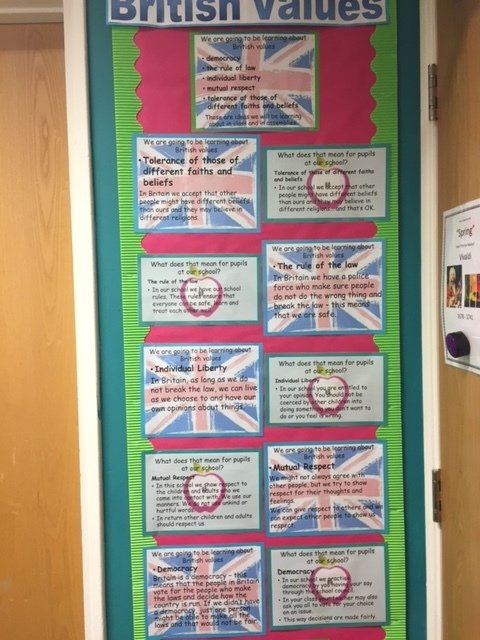 British Values
We are going to be learning about
British values
• democracy
• the rule of law
• individual liberty
• mutual respect
• tolerance of those of
different faiths and beliefs
These are ideas we will be learning
about in class and in assemblies.
We are going to be learning about
British values
• Tolerance of those of
different faiths and
beliefs
In Britain we accept that other
people might have different beliefs
than ours and they may believe in
different religions.
What does that mean for pupils
at our school?
Tolerance of those of different faiths
and beliefs
• In our school we that other
people might have different beliefs
than ours and believe in
different religions and that's OK.
What does that mean for pupils
at our school?
The rule of the
• In our school we have school
rules. These rules ensure that
everyone can be safe, learn and
treat each other
We are going to be learning about
British values
• The rule of the law
• In Britain we have a police
force who make sure people
do not do the wrong thing and
break the law - this means
that we are safe.
We are going to be learning about
British values
• Individual Liberty
• In Britain, as long as we do
not break the law, we can live
as we choose to and have our
own opinions about things.
What does that mean for pupils
at our school?
Individual Liberty
• In our school you are entitled to
your opinion. You should not be
coerced by other children into
doing something you don't want to
do or you feel is wrong.
What does that mean for pupils
at our school?
Mutual Respect
• In this school we show respect to
the children and adults who we
came into contact with. We use our
manners. We unkind or
hurtful words
• In return other children and adults
should respect us.
We are going to be learning about
British values
• Mutual Respect
We might not always agree with
other people, but we try to show
respect for their thoughts and
feelings.
We can give respect to others and we
can expect other people to show us
respect.
We are going to be learning about
British values
• Democracy
Britain is a democracy - this
means that the people in Britain
vote for the people who make
the laws and decide how the
country is run. If we didn't have
a democracy, just one person
might be able to make all the
laws and that would not be fair.
What does that mean for pupils
at our school?
Democracy
• In our school we practise
democracy by you having your say
through the school council.
• In your class your teacher may also
ask you all to vote for your choice
on an issue.
• This way decisions are made fairly
"Spring"
Vivaldi
1678-1741